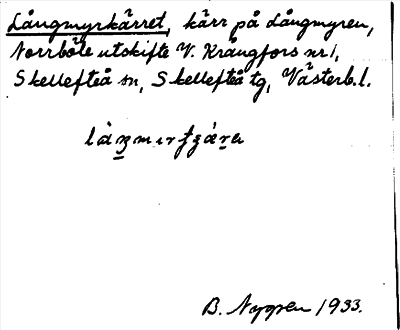 Långmyrkärret, kärr på Långmyren,
Norrböle utskifte V. Krångfors nr 1,
Skellefteå sn, Skellefteå tg, Västerb. l.
B. Nygren 1933.